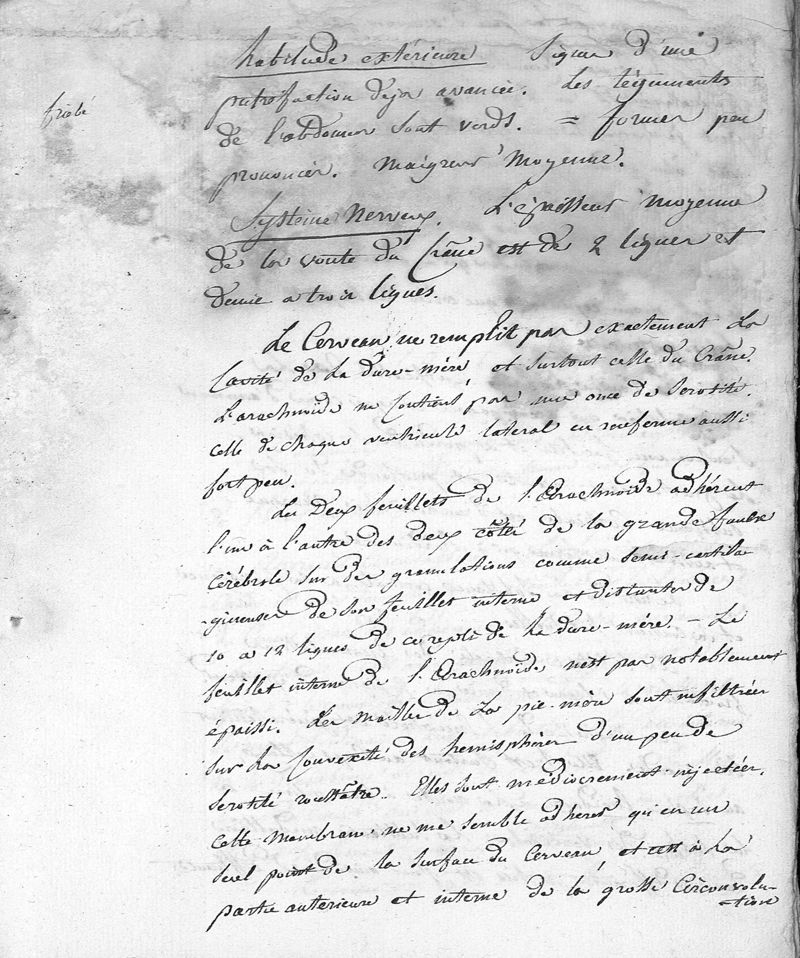 habitude extérieure Signes d'une
putrefaction deja avancée. Les téguments
de l'abdomen sont verds. = formes peu
prononcées. Maigreur Moyenne.
Système Nerveux. L'épaisseur moyenne
de la voute du Crâne est de 2 lignes et
demie a trois lignes.
Le Cerveau ne remplit pas exactement la
Cavité de la dure-mère et surtout celle du Crâne.
L'arachnoïde ne Contient pas une once de Serosité.
celle de chaque ventricule lateral en renferme aussi
fort peu.
Les Deux feuillets de l'Arachnoïde adhérent
l'un à l'autre des deux côtés de la grande faulx
Cérébrale sur des granulations comme semi-cartila
-gineuses de son feuillet interne et distantes de
10 a 12 lignes de ce repli de la dure-mère. - Le
feuillet interne de l'Arachnoïde n'est pas notablement
épaissi. Les Mailles de la pie-mère sont infiltrées
sur la Convexité des hemisphères d'un peu de
Serosité roussâtre. Elles sont médiocrement injectées.
Cette Membrane ne me semble adherer qu'en un
seul point de la surface du Cerveau, et c'est à la
partie anterieure et interne de la grosse Circonvolu-
-tion